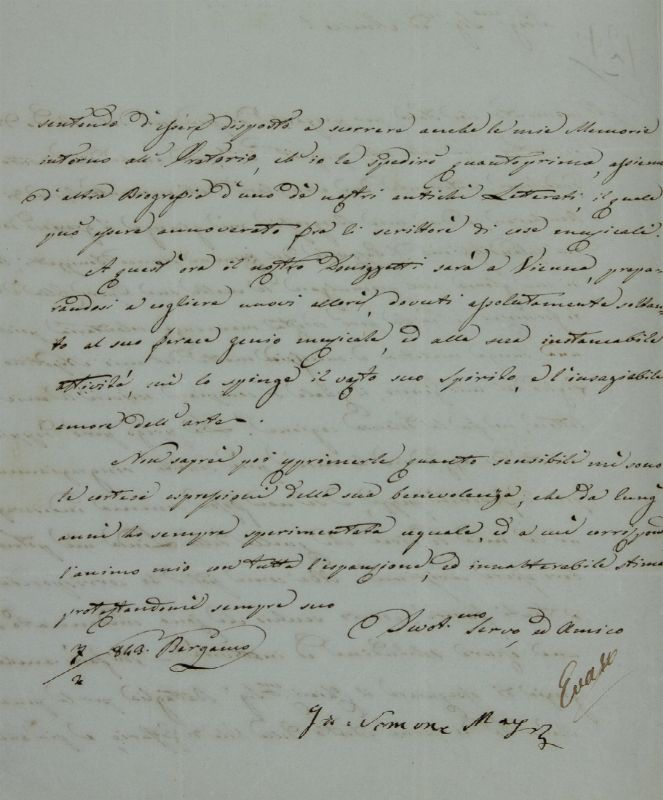 sentendo d'essere disposto a scorrere anche le mie Memorie
intorno all' Oratorio, ch'io le spedirò quantoprima, assieme
d'altra Biografia d'uno de nostri antichi Letterati, il quale
può essere annoverato fra li scrittori di cose musicali.
A quest' ora il nostro Donizzetti sarà a Vienna, prepa-
randosi a cogliere nuovi allori, dovuti assolutamente soltan-
to al suo ferace genio musicale, ed alla sua instancabile
attività, cui lo spinge il vasto suo spirito, e l'insaziabile
amore dell' arte.
Non saprei poi esprimerle quanto sensibili mi sono
le cortesi espressioni della sua benevolenza, che da lungi
anni ho sempre sperimentata eguale, ed a cui corrisponde
l'animo mio con tutta l'espansione, ed inalterabile stima
protestandomi sempre suo
Divot.mo Servo ed Amico
843. Bergamo
Evase
Gio Simone Mayr